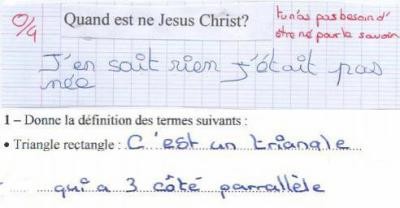 0/4
Quand est ne Jesus Christ?
tu n'as pas besoin d'
être né pour le savoir
J'en sait rien j'était pas
née
1 – Donne la définition des termes suivants :
• Triangle rectangle : C'est un triangle
qui a 3 côté parrallèle